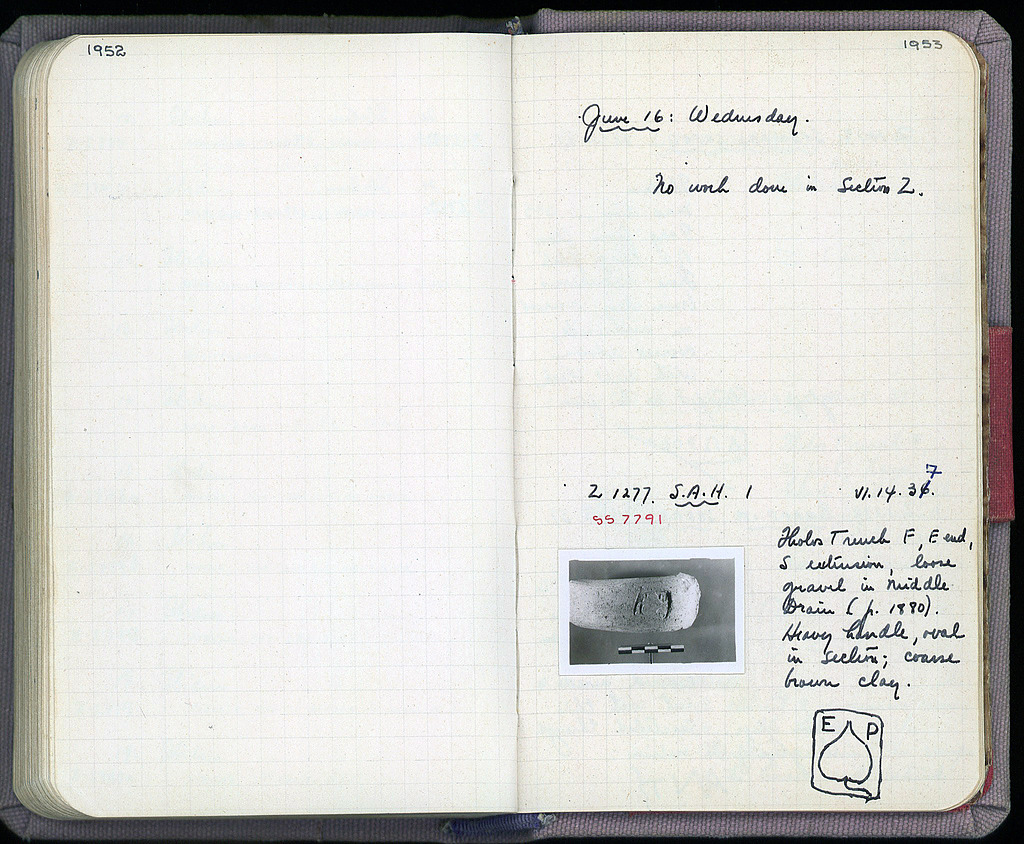 1952
1953
June 16: Wednesday.
No work done in Section Z.
Z 1277. S.A.H. 1
VI.14.36. 7
SS 7791
Tholos Trench F, E end,
S extension, loose
gravel in Middle
Drain (p. 1880).
Heavy handle, oval
in section; coarse
brown clay.
E P